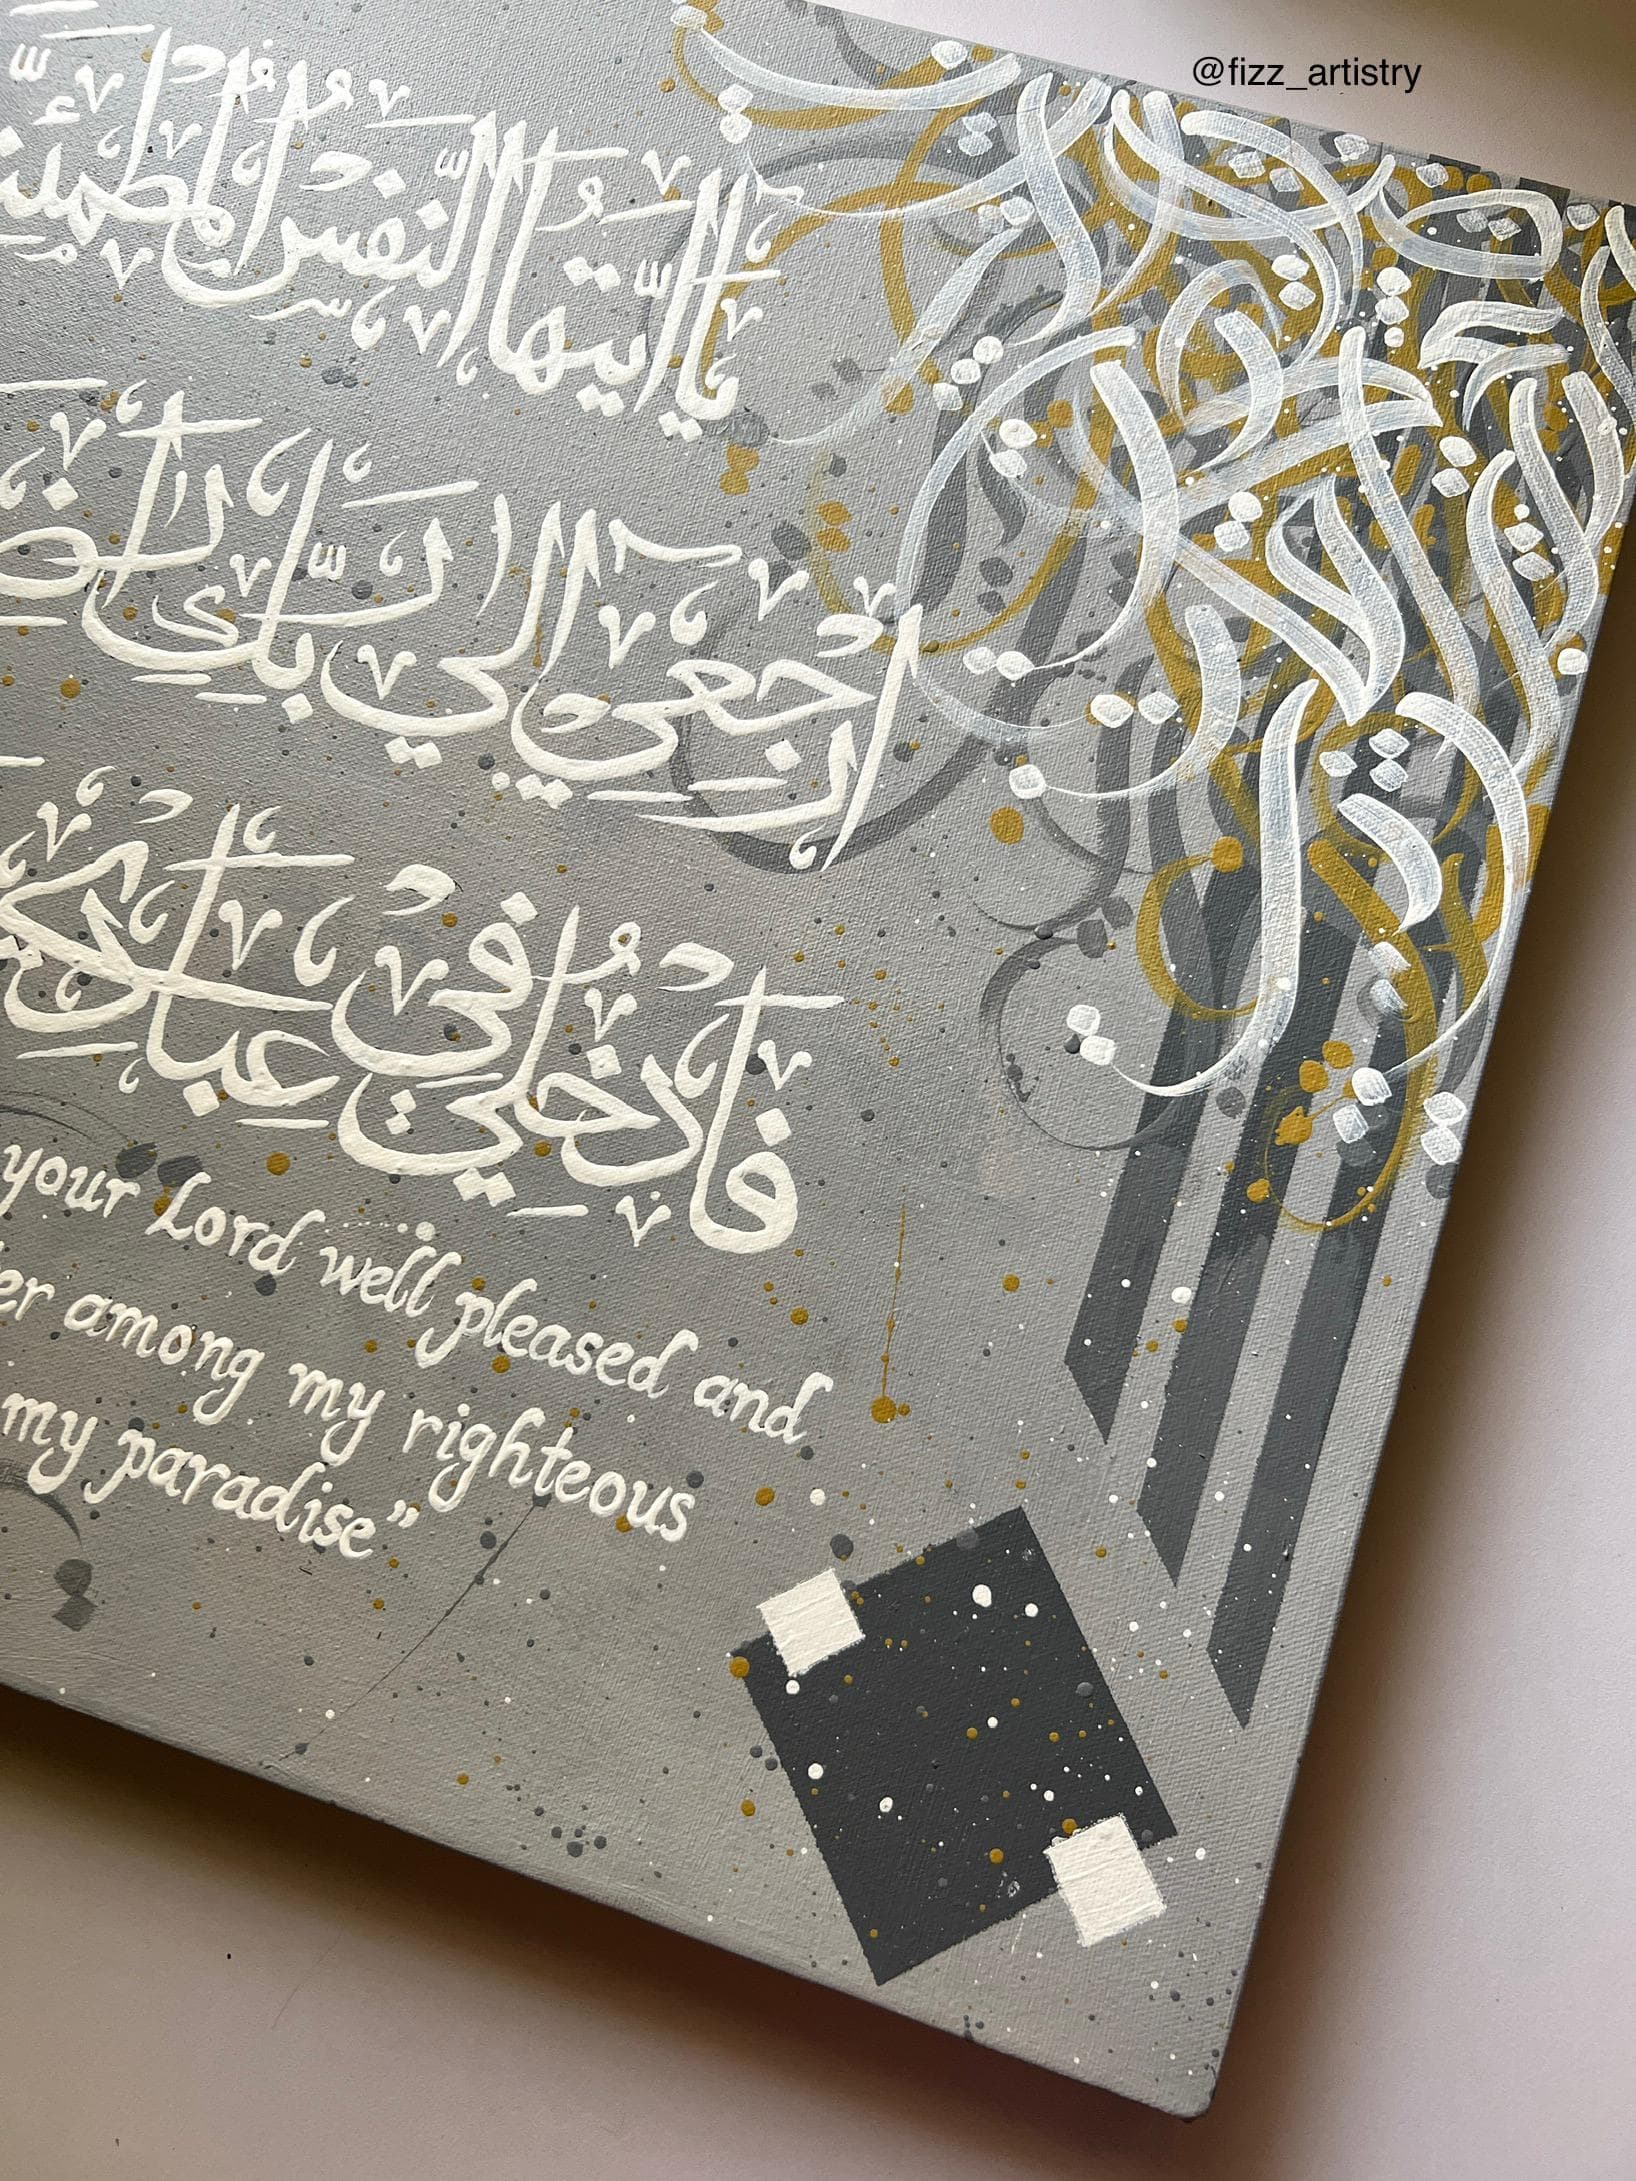 @fizz_artistry
يَا أَيَّتُهَا النَّفْسُ الْمُطْمَئِنَّ
ارْجِعِي إِلَى رَبِّكِ رَا
فَادْخُلِي فِي عِبَادِي
your Lord well pleased and
er among my righteous
my paradise”